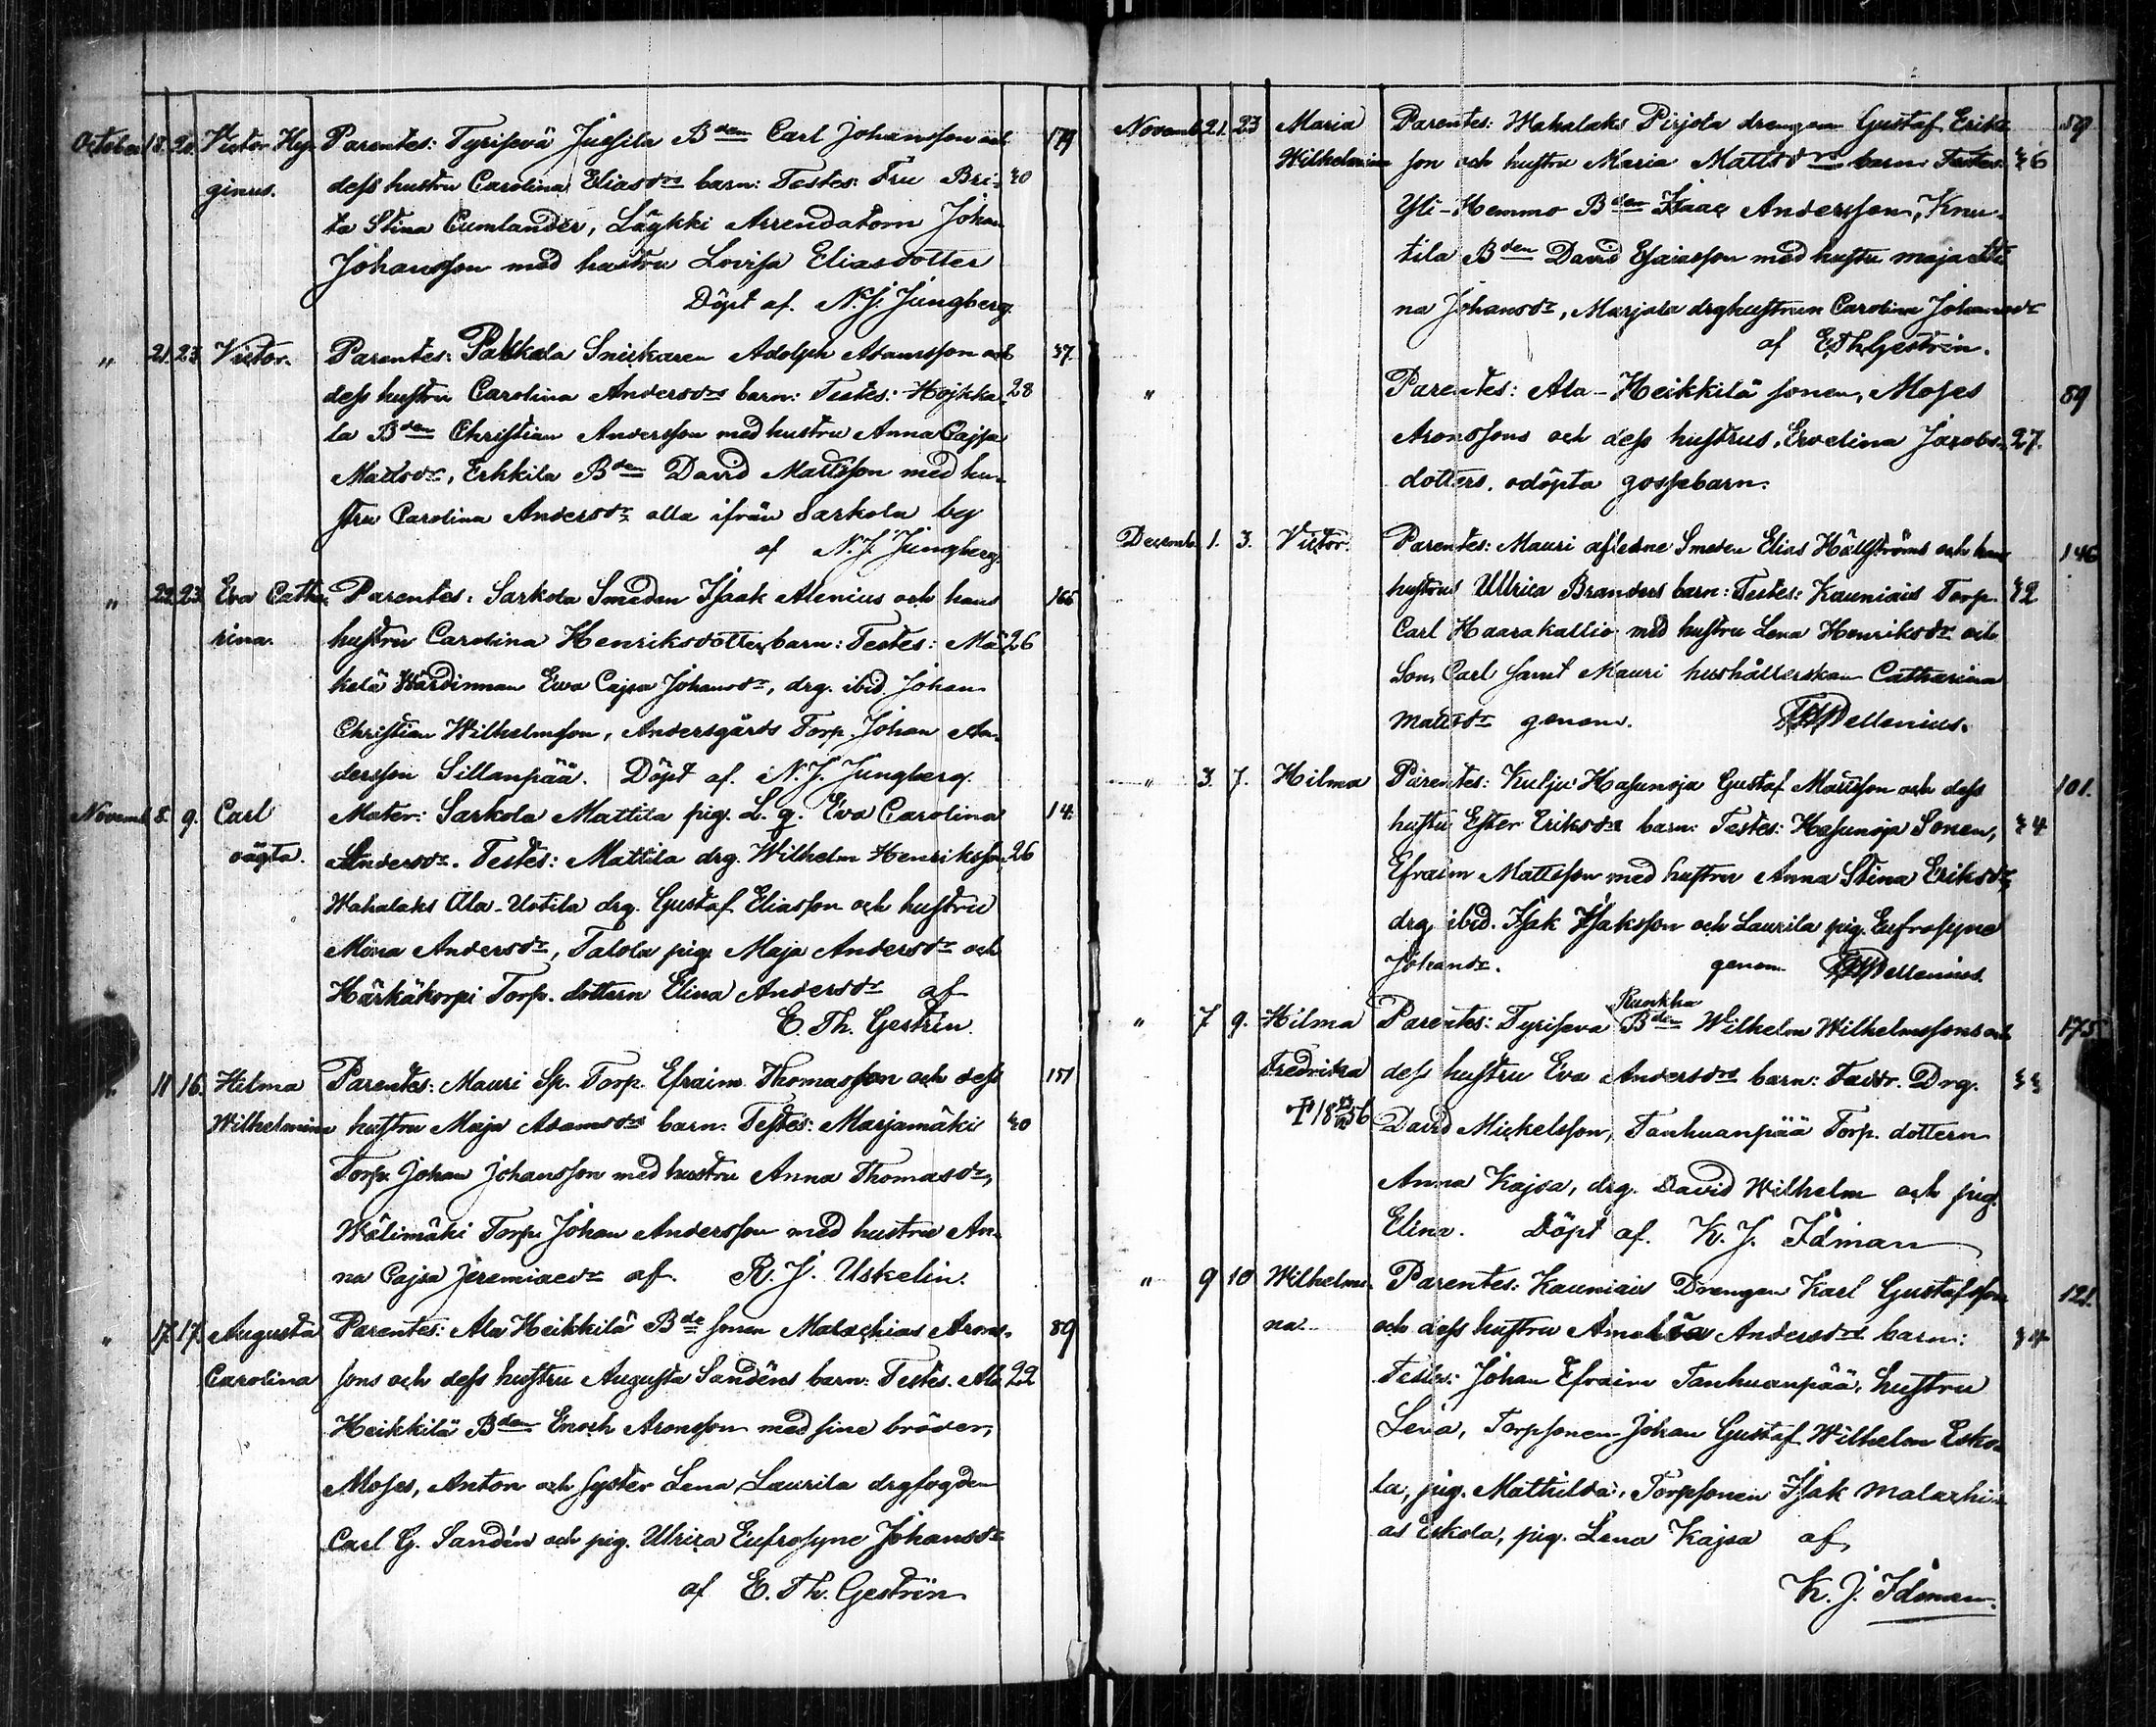 October 18. 20. Victor Hy- Parentes: Tyrisevä Jussila Bden Carl Johansson och 179
ginus. dess hustru Carolina Eliasdrs barn: Testes: Fru Bri- 40
ta Stina Cumlander, Läykki Arrendatorn Johan
Johansson med hustru Lovisa Eliasdotter
Döpt af. N. J. Jungberg.
" 21. 23. Victor. Parentes: Pakkala Snickaren Adolph Adamsson och 37.
dess hustru Carolina Andersdrs barn: Testes: Hojkka- 28
la Bden Christian Andersson med hustru Anna Cajsa
Mattsdr, Erkkila Bden David Mattsson med hu-
stru Carolina Andersdr alla ifrån Sarkola by
af N. J. Jungberg.
" 22. 23. Eva Catha- Parentes: Sarkola Smeden Isaak Alenius och hans 166
rina. hustru Carolina Henriksdotters barn: Testes: Mä- 26
kelä Wärdinnan Ewa Cajsa Johansdr, drg. ibid. Johan
Christian Wilhelmsson, Andersgårds Torp. Johan An-
dersson Sillanpää. Döpt af. N. J. Jungberg.
Novemb. 8. 9. Carl Mater: Sarkola Mattila pig. L. q. Eva Carolina 14.
oägta. Andersdr. Testes: Mattila drg. Wilhelm Henriksson, 26
Wahalaks Ala-Uotila drg. Gustaf Eliasson och hustru
Mina Andersdr, Talola pig. Maja Andersdr och
Härkäkorpi Torp. dottern Elina Andersdr af
E. Th. Gestrin.
" 11 16. Hilma Parentes: Mauri Sp. Torp. Efraim Thomasson och dess 151
Wilhelmina hustru Maja Adamsdrs barn: Testes: Marjamäki 40
Torp. Johan Johansson med hustru Anna Thomasdr,
Wälimäki Torp. Johan Andersson med hustru An-
na Cajsa Jeremiaedr af. R. J. Uskelin.
" 17. 17. Augusta Parentes: Ala Heikkilä Bde sonen Malachias Arons- 89
Carolina sons och dess hustru Augusta Sandéns barn: Testes. Ala 22
Heikkilä Bden Enoch Aronsson med sine bröder,
Moses, Anton och syster Lena Laurila drgfogden
Carl G. Sandén och pig. Ulrica Eufrosyne Johansdr
af E. Th. Gestrin
Novemb. 21. 23 Maria Parentes: Wahalaks Pirjola drengen Gustaf Eriks- 59
Wilhelmina son och hustru Maria Mattsdrs barn: Testes: 36
Yli-Hemmo Bden Isaac Andersson, Knu-
tila Bden David Esaiasson med hustru Maja Sti-
na Johansdr, Marjala drghustrun Carolina Johansdr
af E Th Gestrin.
" Parentes: Ala-Heikkilä sonen, Moses 89
Aronssons och dess hustrus, Evelina Jacobs- 27.
dotters. odöpta gossebarn.
Decemb. 1. 3. Victor. Parentes: Mauri aflidne Smeden Elias Hällströms och hans 146
hustrus Ullrica Branders barn: Testes: Kauniais Torp. 42
Carl Haarakallio med hustru Lena Henriksdr och
Son, Carl samt Mauri hushållerskan Catharina
Mattsdr genom. Wellenius.
" 3. 7. Hilma Parentes: Kulju Hasunoja Gustaf Mattsson och dess 101.
hustru Ester Eriksdrs barn: Testes: Hasunoja Sonen, 34
Efraim Mattsson med hustru Anna Stina Eriksdr,
drg. ibid. Isak Isaksson och Laurila pig. Eufrosyne
Johansdr. genom Wellenius.
Runkka
" 7 9. Hilma Parentes: Tyriseva Bden Wilhelm Wilhelmssons och 175
Fredrika dess hustru Eva Andersdrs barn: Fadr. Drg. 33
David Mickelsson, Tanhuanpää Torp. dottern
Anna Kajsa, drg. David Wilhelm och pig.
Elina. Döpt af. K. J. Idman
" 9 10 Wilhelmi- Parentes: Kauniais Drengen Karl Gustafsson 121.
na. och dess hustru Amalia Andersdrs barn: 34
Testes: Johan Efraim Tanhuanpää, hustru
Lena, Torpsonen Johan Gustaf Wilhelm Esko-
la, pig. Mathilda, Torpsonen Isak Malachi-
as Eskola, pig. Lena Kajsa af,
K. J. Idman.